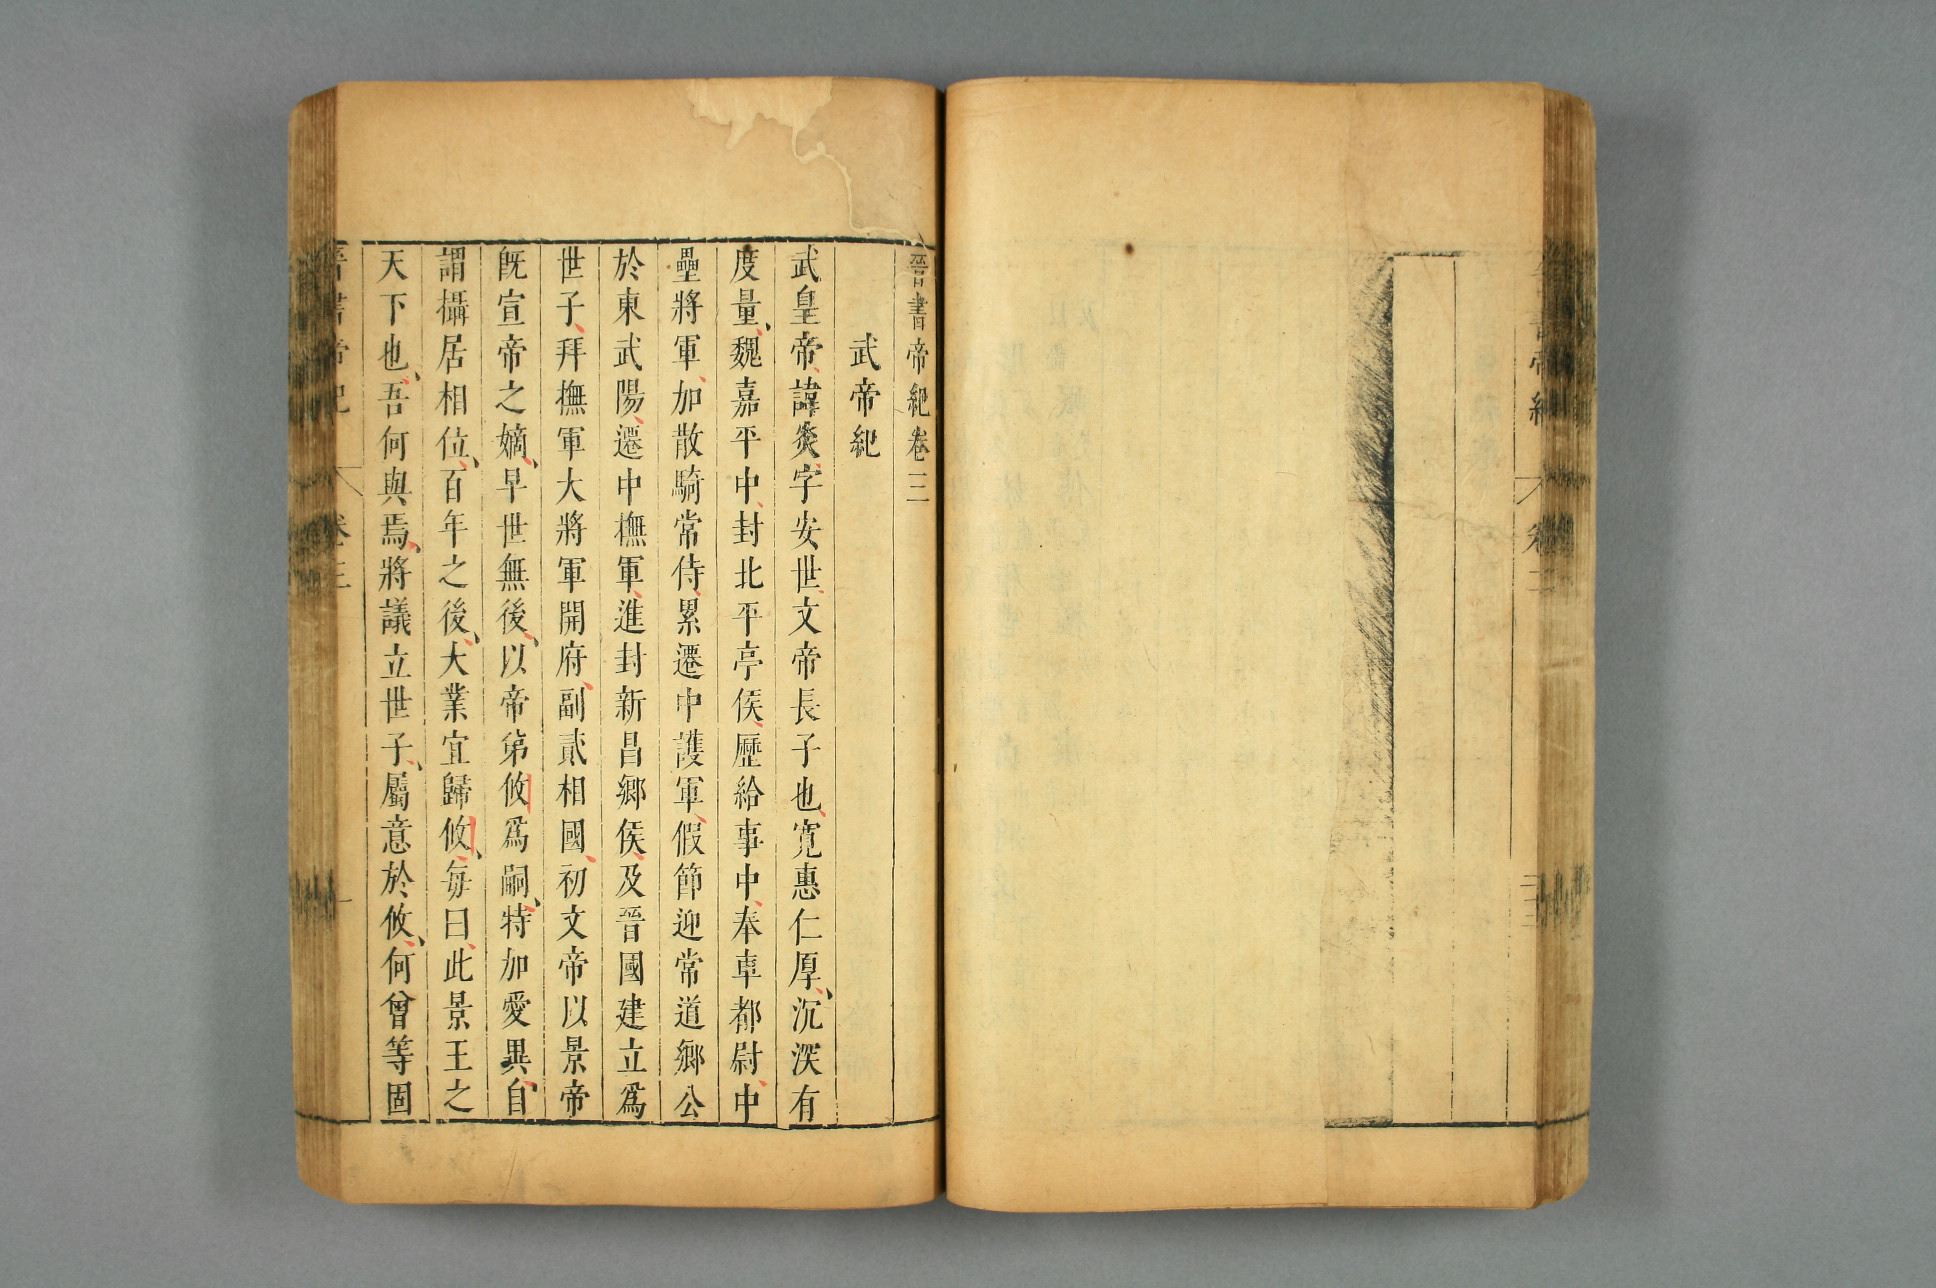 晉書帝紀 卷二
晉書帝紀卷三
武帝紀
武皇帝諱炎字安世文帝長子也寛惠仁厚沉深有
度量魏嘉平中封北平亭侯歷給事中奉車都尉中
壘將軍加散騎常侍累遷中護軍假節迎常道鄉公
於東武陽遷中撫軍進封新昌鄉侯及晉國建立爲
世子拜撫軍大將軍開府副貳相國初文帝以景帝
旣宣帝之嫡早世無後以帝弟攸爲嗣特加愛異自
謂攝居相位百年之後大業宜歸攸每曰此景王之
天下也吾何與焉將議立世子屬意於攸何曾等固
晉書帝紀 卷三 一